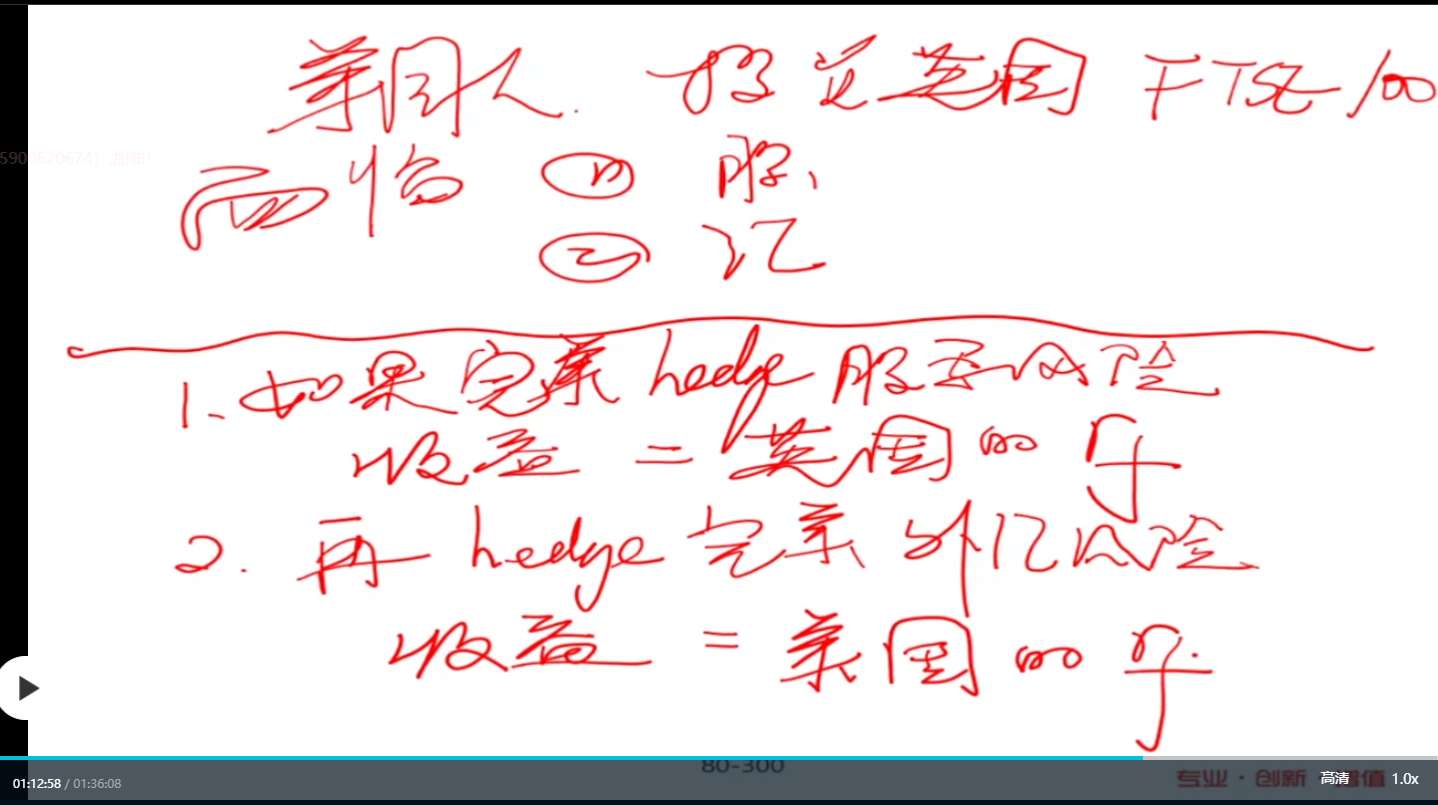 美国人. 投资英国 FTSE 100
面临 ① 股、
② 汇
1. 如果完美 hedge 股票风险
收益 = 英国的 rf
2. 再 hedge 完美 外汇风险
收益 = 美国的 rf.
80-300
01:12:58 / 01:36:08
专业·创新 值
高清 1.0x